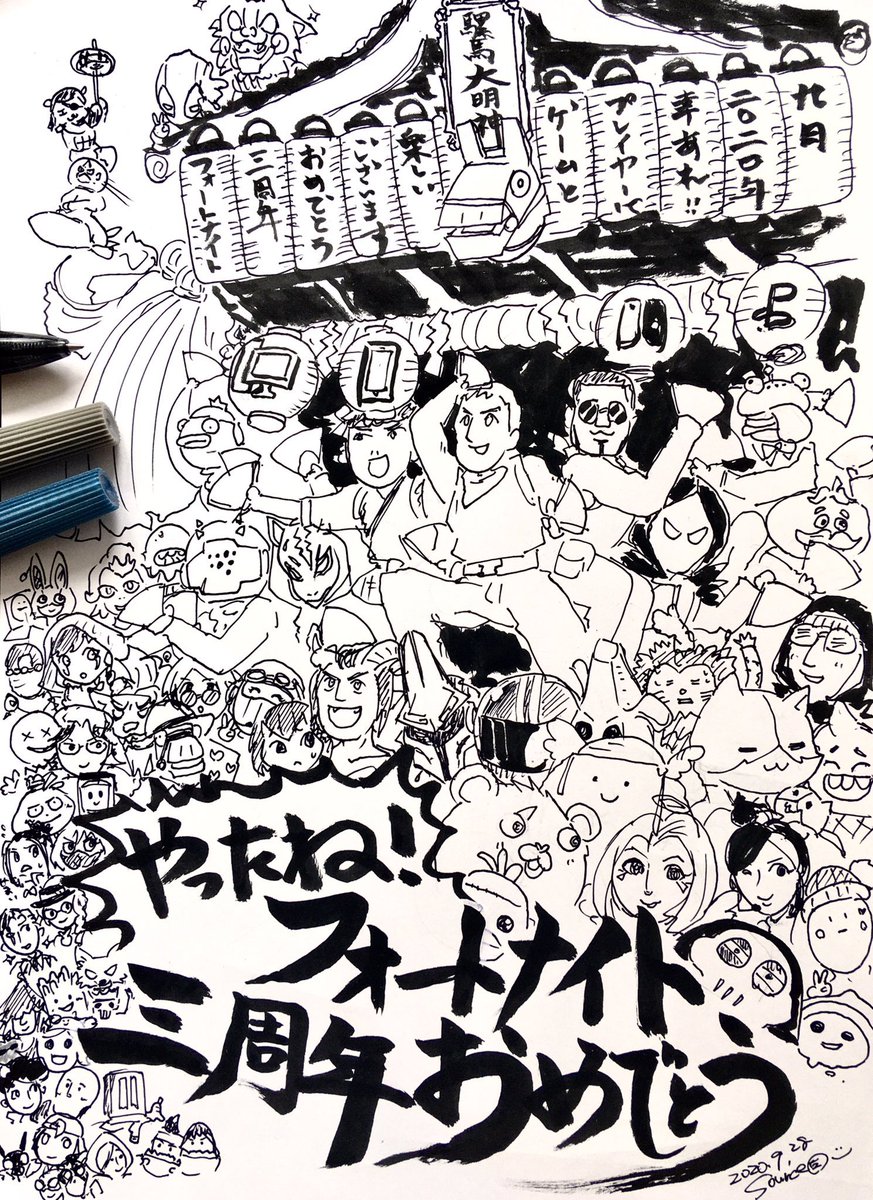 騾馬大明神
フォートナイト
三周年
おめでとう
ございます
楽しい
ゲームと
プレイヤーに
幸あれ!!
二〇二〇年
九月
やったね!
フォートナイト
三周年おめでとう
2020.9.28
Source